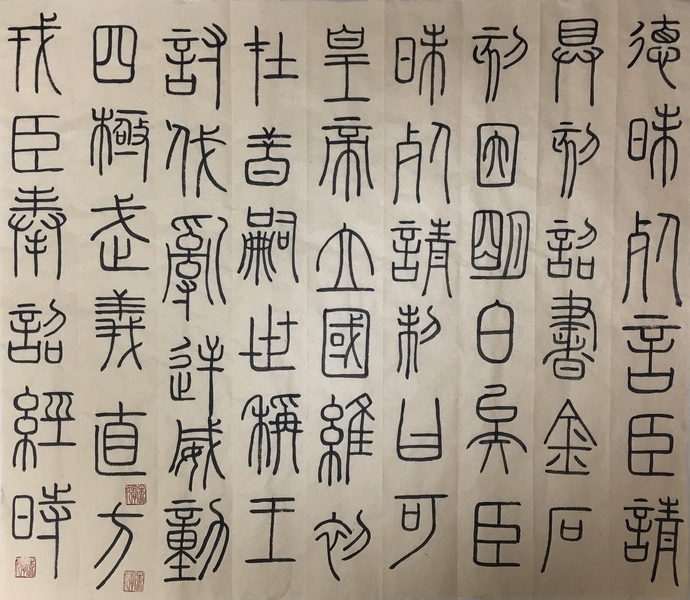 德昧死言臣請
具刻詔書金石
刻因明白矣臣
昧死請制曰可
皇帝立國維初
在昔嗣世稱王
討伐亂逆威動
四極武義直方
戎臣奉詔經時